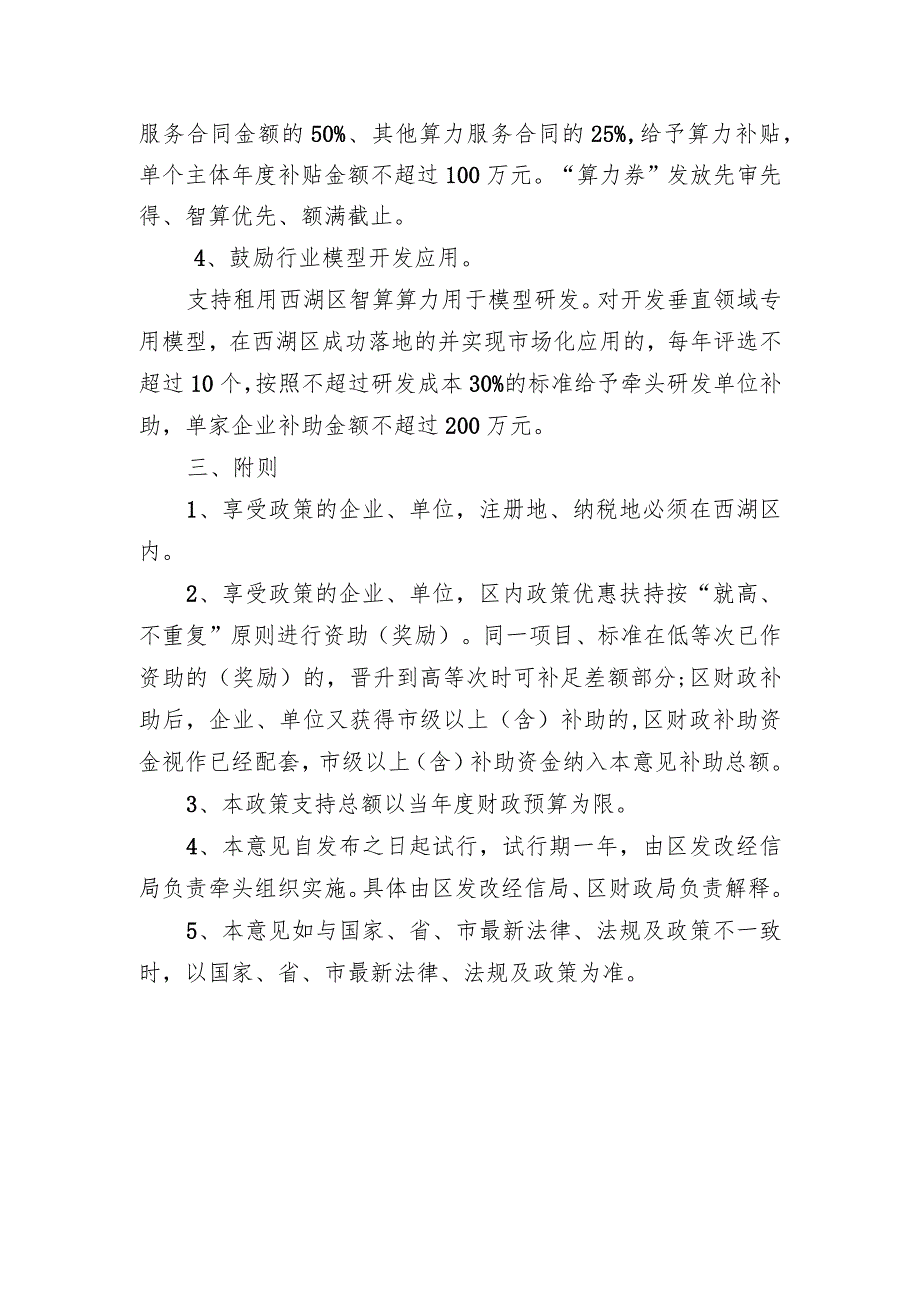 服务合同金额的50%、其他算力服务合同的25%,给予算力补贴,
单个主体年度补贴金额不超过100万元。“算力券”发放先审先
得、智算优先、额满截止。
4、鼓励行业模型开发应用。
支持租用西湖区智算算力用于模型研发。对开发垂直领域专
用模型，在西湖区成功落地的并实现市场化应用的，每年评选不
超过10个,按照不超过研发成本30%的标准给予牵头研发单位补
助，单家企业补助金额不超过200万元。
三、附则
1、享受政策的企业、单位，注册地、纳税地必须在西湖区
内。
2、享受政策的企业、单位，区内政策优惠扶持按“就高、
不重复”原则进行资助（奖励）。同一项目、标准在低等次已作
资助的（奖励）的，晋升到高等次时可补足差额部分;区财政补
助后，企业、单位又获得市级以上（含）补助的,区财政补助资
金视作已经配套，市级以上（含）补助资金纳入本意见补助总额。
3、本政策支持总额以当年度财政预算为限。
4、本意见自发布之日起试行，试行期一年，由区发改经信
局负责牵头组织实施。具体由区发改经信局、区财政局负责解释。
5、本意见如与国家、省、市最新法律、法规及政策不一致
时，以国家、省、市最新法律、法规及政策为准。